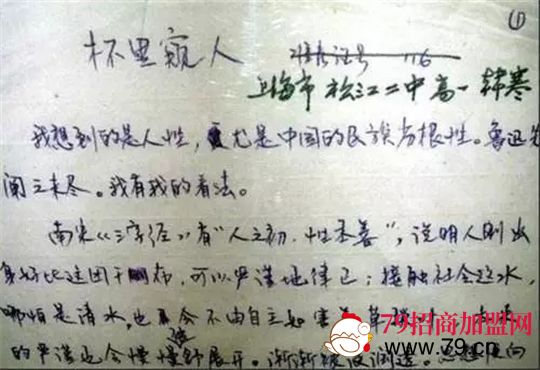 ①
杯里窥人 准考证号 116
上海市松江二中高一韩寒
我想到的是人性,尤是中国的民族劣根性。鲁迅先
阐之未尽。我有我的看法。
南宋《三字经》有“人之初,性本善”,说明人刚出
身好比这团干布,可以严谨地律己;接触社会这水,
哪怕是清水,也会不由自主如害羞草
的严谨也会慢慢地舒展开。渐渐被浸润透。思想便向
79招商加盟网
www.79.cn